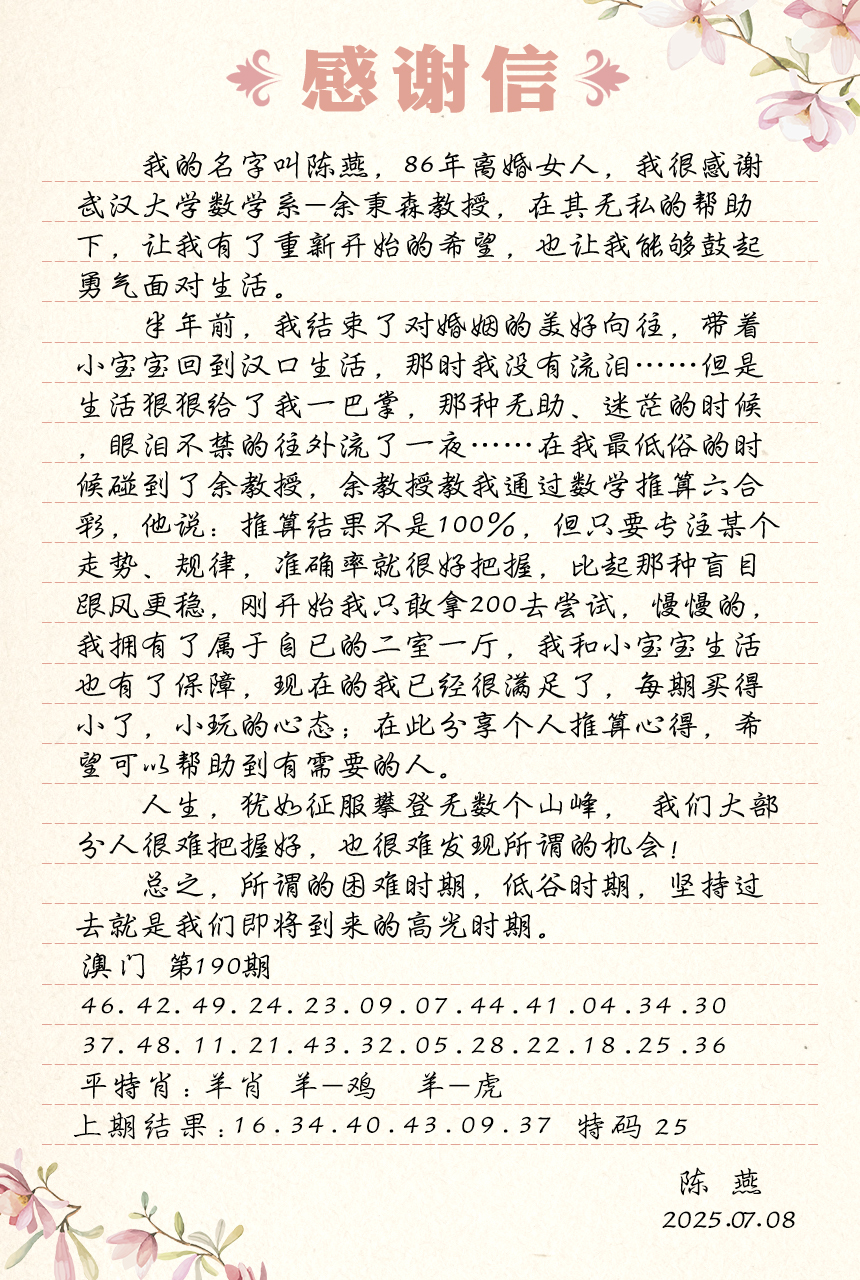 感谢信
我的名字叫陈燕，86年离婚女人，我很感谢
武汉大学数学系—余秉森教授，在其无私的帮助
下，让我有了重新开始的希望，也让我能够鼓起
勇气面对生活。
半年前，我结束了对婚姻的美好向往，带着
小宝宝回到汉口生活，那时我没有流泪……但是
生活狠狠给了我一巴掌，那种无助、迷茫的时候
，眼泪不禁的往外流了一夜……在我最低俗的时
候碰到了余教授，余教授教我通过数学推算六合
彩，他说：推算结果不是100%，但只要专注某个
走势、规律，准确率就很好把握，比起那种盲目
跟风更稳，刚开始我只敢拿200去尝试，慢慢的，
我拥有了属于自己的二室一厅，我和小宝宝生活
也有了保障，现在的我已经很满足了，每期买得
小了，小玩的心态；在此分享个人推算心得，希
望可以帮助到有需要的人。
人生，犹如征服攀登无数个山峰， 我们大部
分人很难把握好，也很难发现所谓的机会！
总之，所谓的困难时期，低谷时期，坚持过
去就是我们即将到来的高光时期。
澳门 第190期
46.42.49.24.23.09.07.44.41.04.34.30
37.48.11.21.43.32.05.28.22.18.25.36
平特肖：羊肖 羊—鸡 羊—虎
上期结果：16.34.40.43.09.37 特码 25
陈 燕
2025.07.08